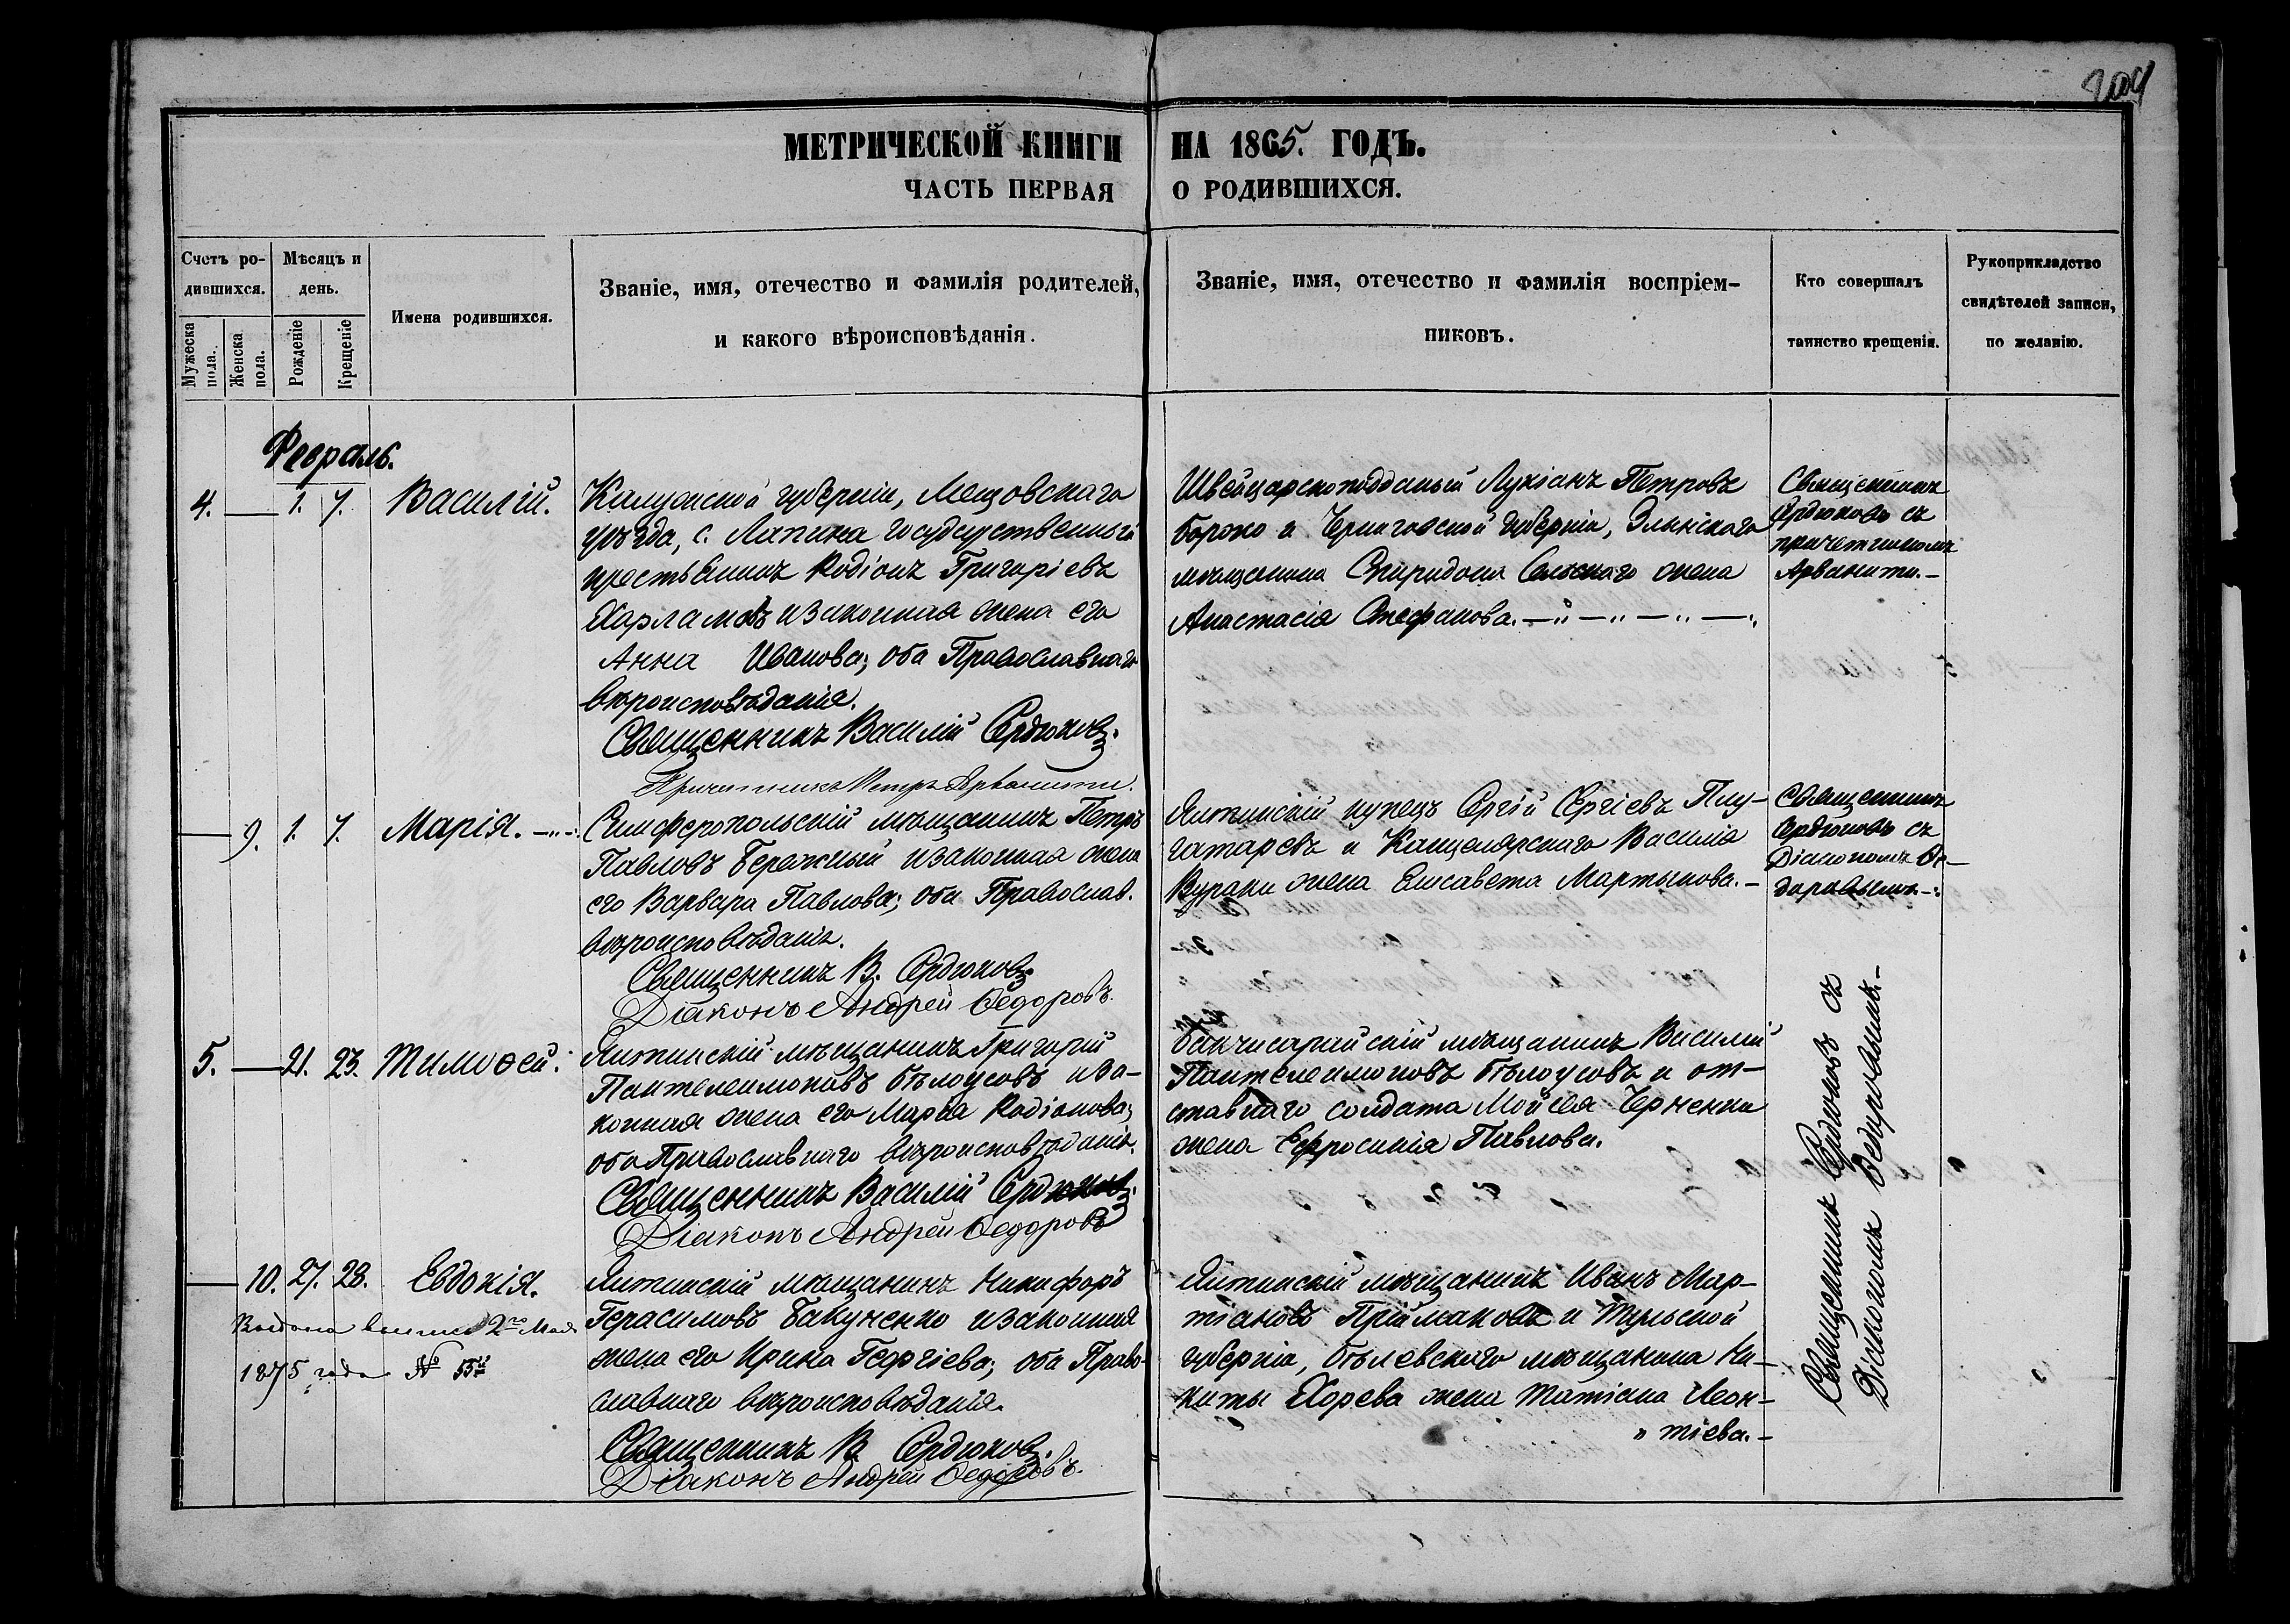 204
МЕТРИЧЕСКОЙ КНИГИ НА 1865. ГОДЪ.
ЧАСТЬ ПЕРВАЯ О РОДИВШИХСЯ.
Счетъ ро-
дившихся.
Мужеска
пола.
Женска
пола.
Мѣсяцъ и
день.
Рожденіе
Крещеніе
Имена родившихся.
Званіе, имя, отечество и фамилія родителей,
и какого вѣроисповѣданія.
Званіе, имя, отечество и фамилія воспріем-
никовъ.
Кто совершалъ
таинство крещенія.
Рукоприкладство
свидѣтелей записи,
по желанію.
Февраль.
4. — 1. 7. Василій.
Калужской губерніи, Мещовскаго
уѣзда, с. Лапина государственный
крестьянинъ Родіонъ Григоріевъ
Харламовъ и законная жена его
Анна Иванова; оба Православнаго
вѣроисповѣданія.
Священникъ Василій Сердюковъ.
Причетникъ Петръ Арванити.
Швейцарскоподданый Лукіанъ Петровъ
и Черниговской губерніи,
мѣщанина Спиридона жена
Анастасія Стефанова.
Священникъ
Сердюковъ съ
причетникомъ
Арванити.—
— 9. 1. 7. Марія.
Симферопольскій мѣщанинъ Петръ
Павловъ Бережный и законная жена
его Варвара Павлова; оба Православ.
вѣроисповѣданія.
Священникъ В. Сердюковъ.
Діаконъ Андрей Ѳедоровъ.
Ялтинскій купецъ Сергій Сергіевъ Плу-
гатаревъ и Канцелярскаго Василія
Вураки жена Елисавета Мартынова.—
Священникъ
Сердюковъ съ
Діакономъ Ѳе-
доровымъ.—
5. — 21. 23. Тимоѳей.
Ялтинскій мѣщанинъ Григорій
Пантелеимоновъ Бѣлоусовъ и за-
конная жена его Марѳа Родіонова;
оба Православнаго вѣроисповѣданія.
Священникъ Василій Сердюковъ.
Діаконъ Андрей Ѳедоровъ
Бахчисарайскій мѣщанинъ Василій
Пантелеимоновъ Бѣлоусовъ и от-
ставнаго солдата Мойсея Черненки
жена Ефросинія Павлова.
— 10. 27. 28. Евдокія.
Выдана 2го Мая
1875 года № 55й
Ялтинскій мѣщанинъ Никифоръ
Герасимовъ Бакуменко и законная
жена его Ирина Георгіева; оба Право-
славнаго вѣроисповѣданія.
Священникъ В. Сердюковъ.
Діаконъ Андрей Ѳедоровъ.
Ялтинскій мѣщанинъ Иванъ Мар-
тіановъ Пріймаковъ и Тульской
губерніи, Бѣлевскаго мѣщанина Ни-
киты Хорева жена Татіана Леон-
тіева.—
Священникъ Сердюковъ съ
Діакономъ Ѳедоровымъ.—